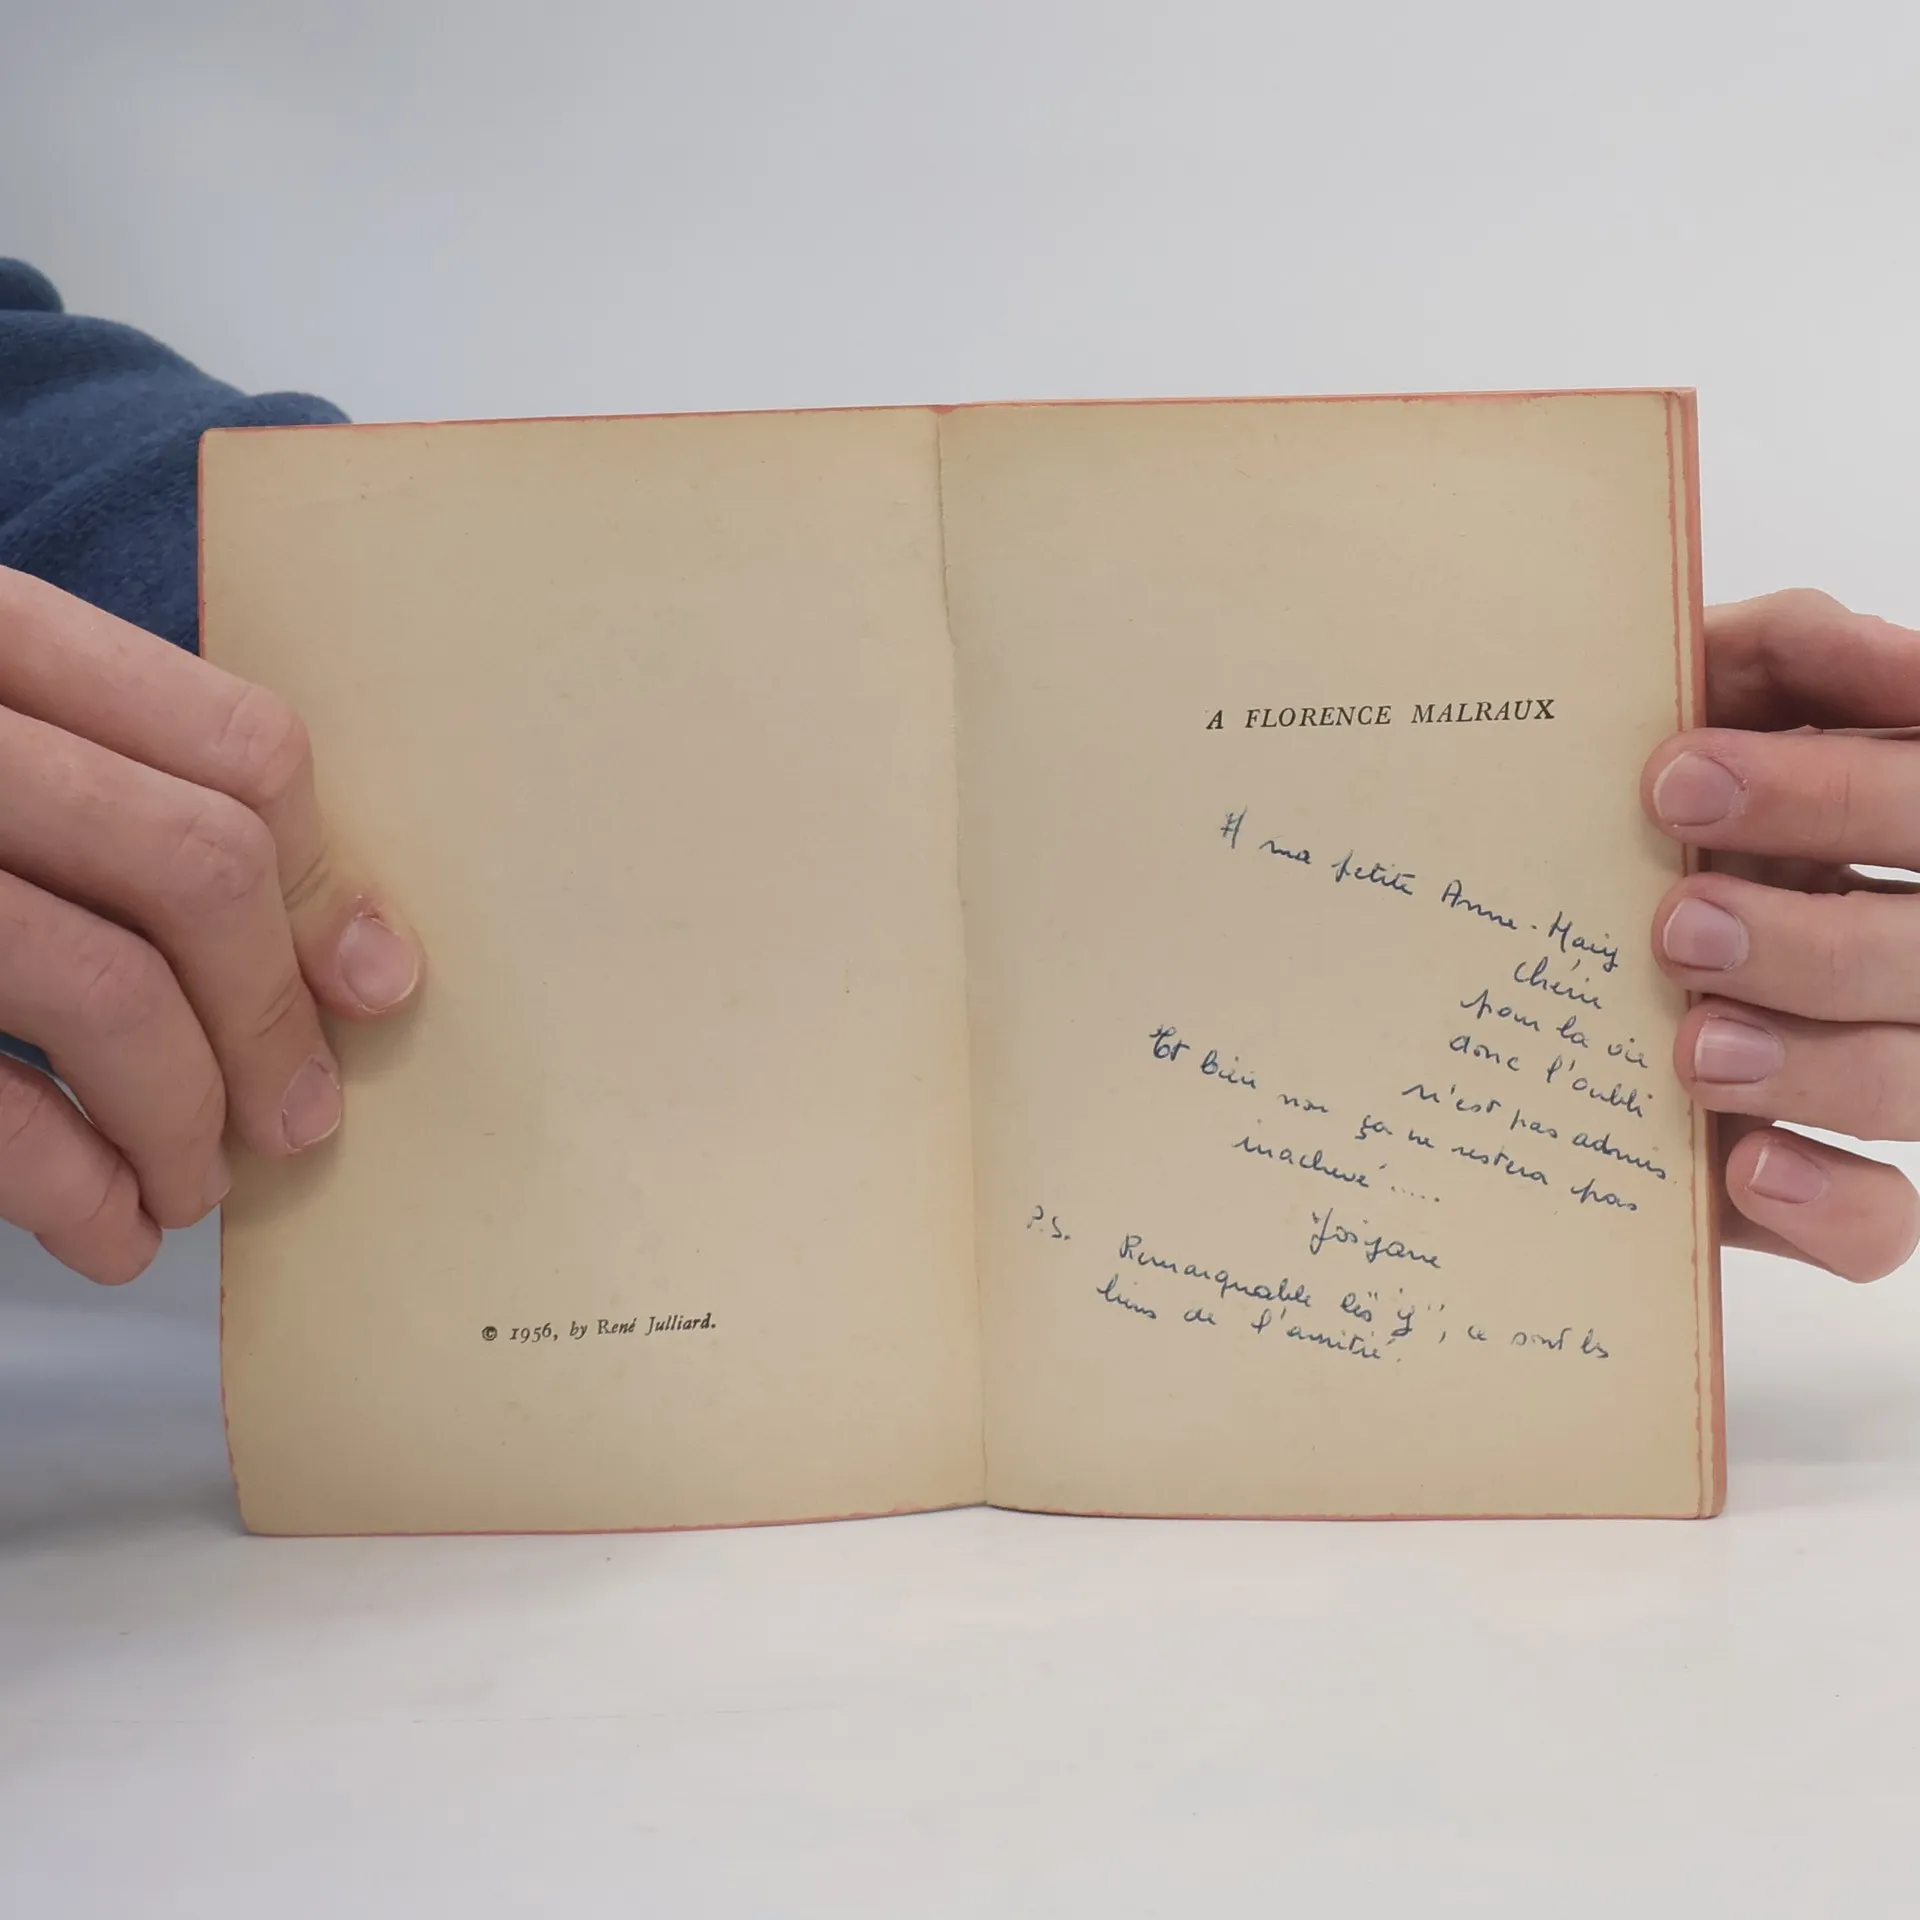 © 1956, by René Julliard.
A FLORENCE MALRAUX
A ma petite Anne-Mary
chérie
pour la vie
donc l'oubli
n'est pas admis.
Et bien non ça ne restera pas
inachevé .....
Josyane
P.S. Remarquable les "y", ce sont les
liens de l'amitié.